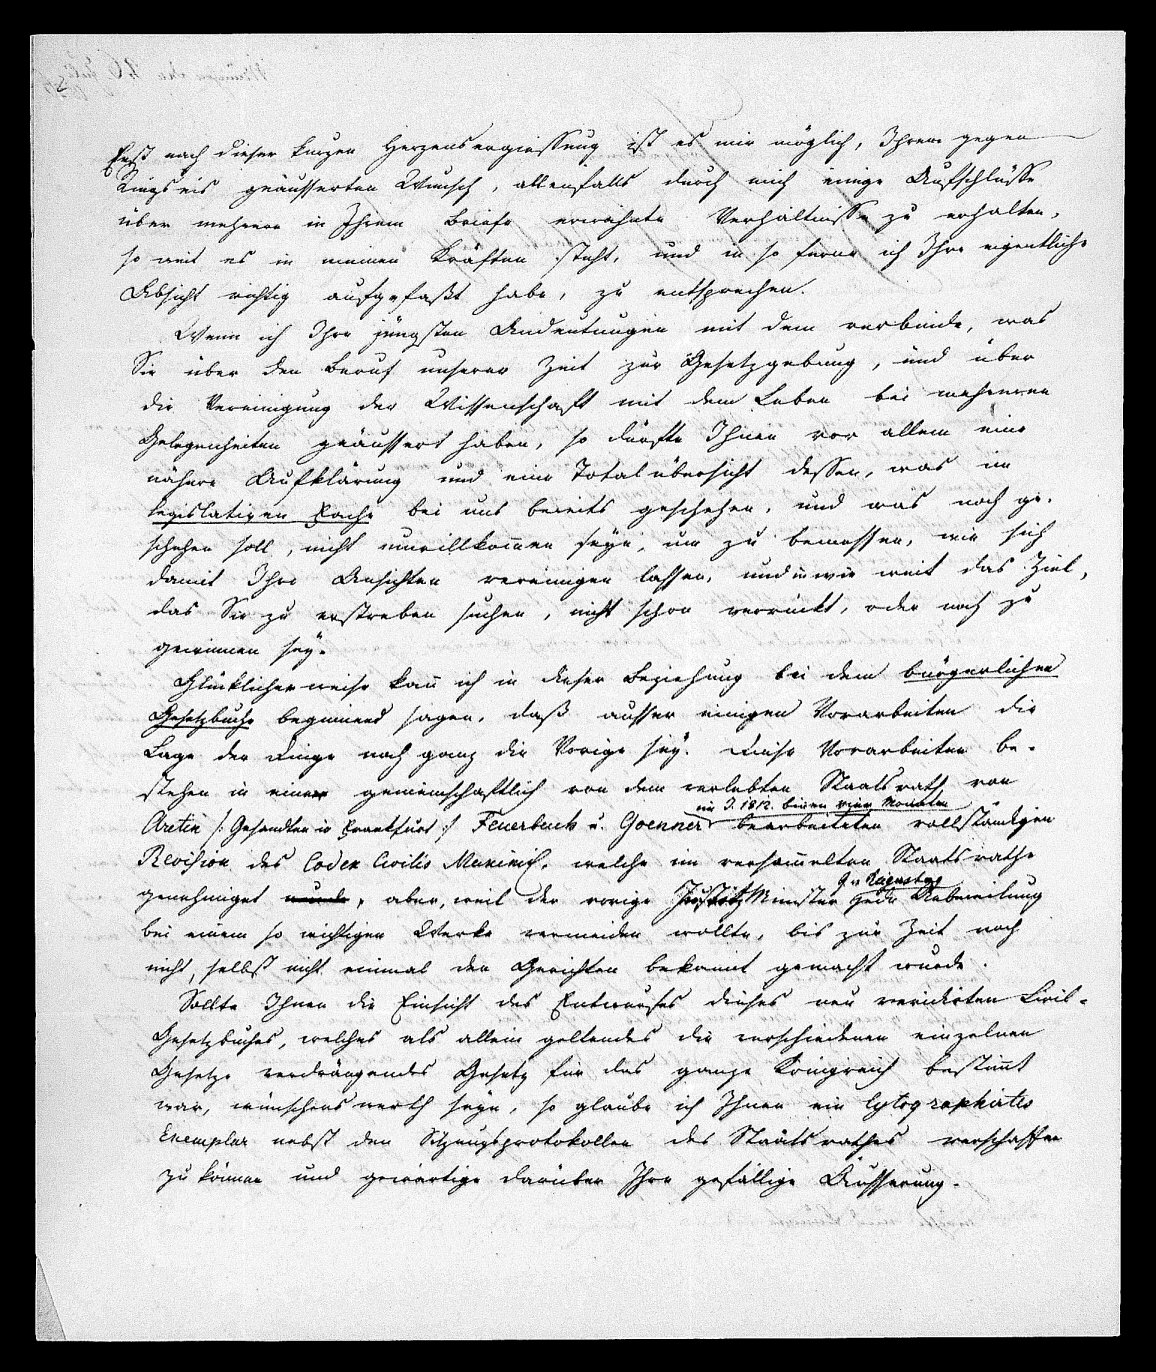 Erst nach dieser kurzen Herzensergiessung ist es mir möglich, Ihrem gegen
Ringseis geäusserten Wunsch, allenfalls durch mich einige Aufschlüsse
über mehrere in Ihrem Briefe erwähnte Verhältnisse zu erhalten,
so weit es in meinen Kräften steht, und in so ferne ich Ihre eigentliche
Absicht richtig aufgefaßt habe, zu entsprechen.
Wenn ich Ihre jüngsten Andeutungen mit dem verbinde, was
Sie über den Beruf unserer Zeit zur Gesetzgebung, und über
die Vereinigung der Wissenschaft mit dem Leben bei mehreren
Gelegenheiten geäussert haben, so dürfte Ihnen vor allem eine
nähere Aufklärung und eine Totalübersicht dessen, was im
legislativen Fache bei uns bereits geschehen, und was noch ge-
schehen soll, nicht unwillkomen seyn, um zu bemessen, wie sich
damit Ihre Ansichten vereinigen lassen, und in wie weit das Ziel,
das Sie zu erstreben suchen, nicht schon verrückt, oder noch zu
gewinnen sey.
Glücklicherweise kañ ich in dieser Beziehung bei dem bürgerlichen
Gesetzbuche beginnend sagen, daß ausser einigen Vorarbeiten die
Lage der Dinge noch ganz die Vorige sey. Diese Vorarbeiten be-
stehen in einer gemeinschaftlich von dem verlebten Staatsrath von
im J. 1812. binnen vier Monaten
Aretin /: Gesandten in Frankfurt :/ Feuerbach u. Goenner bearbeiteten vollständigen
Revision des Codex Civilis Maximil. welche im versam̃elten Staatsrathe
G. v. Reigersberg
genehmiget wurde, aber, weil der vorige Justitz Minister jede Uebereilung
bei einem so wichtigen Werke vermeiden wollte, bis zur Zeit noch
nicht, selbst nicht einmal den Gerichten bekannt gemacht wurde.
Sollte Ihnen die Einsicht des Entwurfes dieses neu revidirten Civil-
Gesetzbuches, welches als allein geltendes die verschiedenen einzelnen
Gesetze verdrängendes Gesetz für das ganze Königreich bestim̃t
war, wünschenswerth seyn, so glaube ich Ihnen ein lytographirtes
Exemplar nebst den Sitzungsprotokollen des Staatsrathes verschaffen
zu können und gewärtige darüber Ihre gefällige Äusserung.